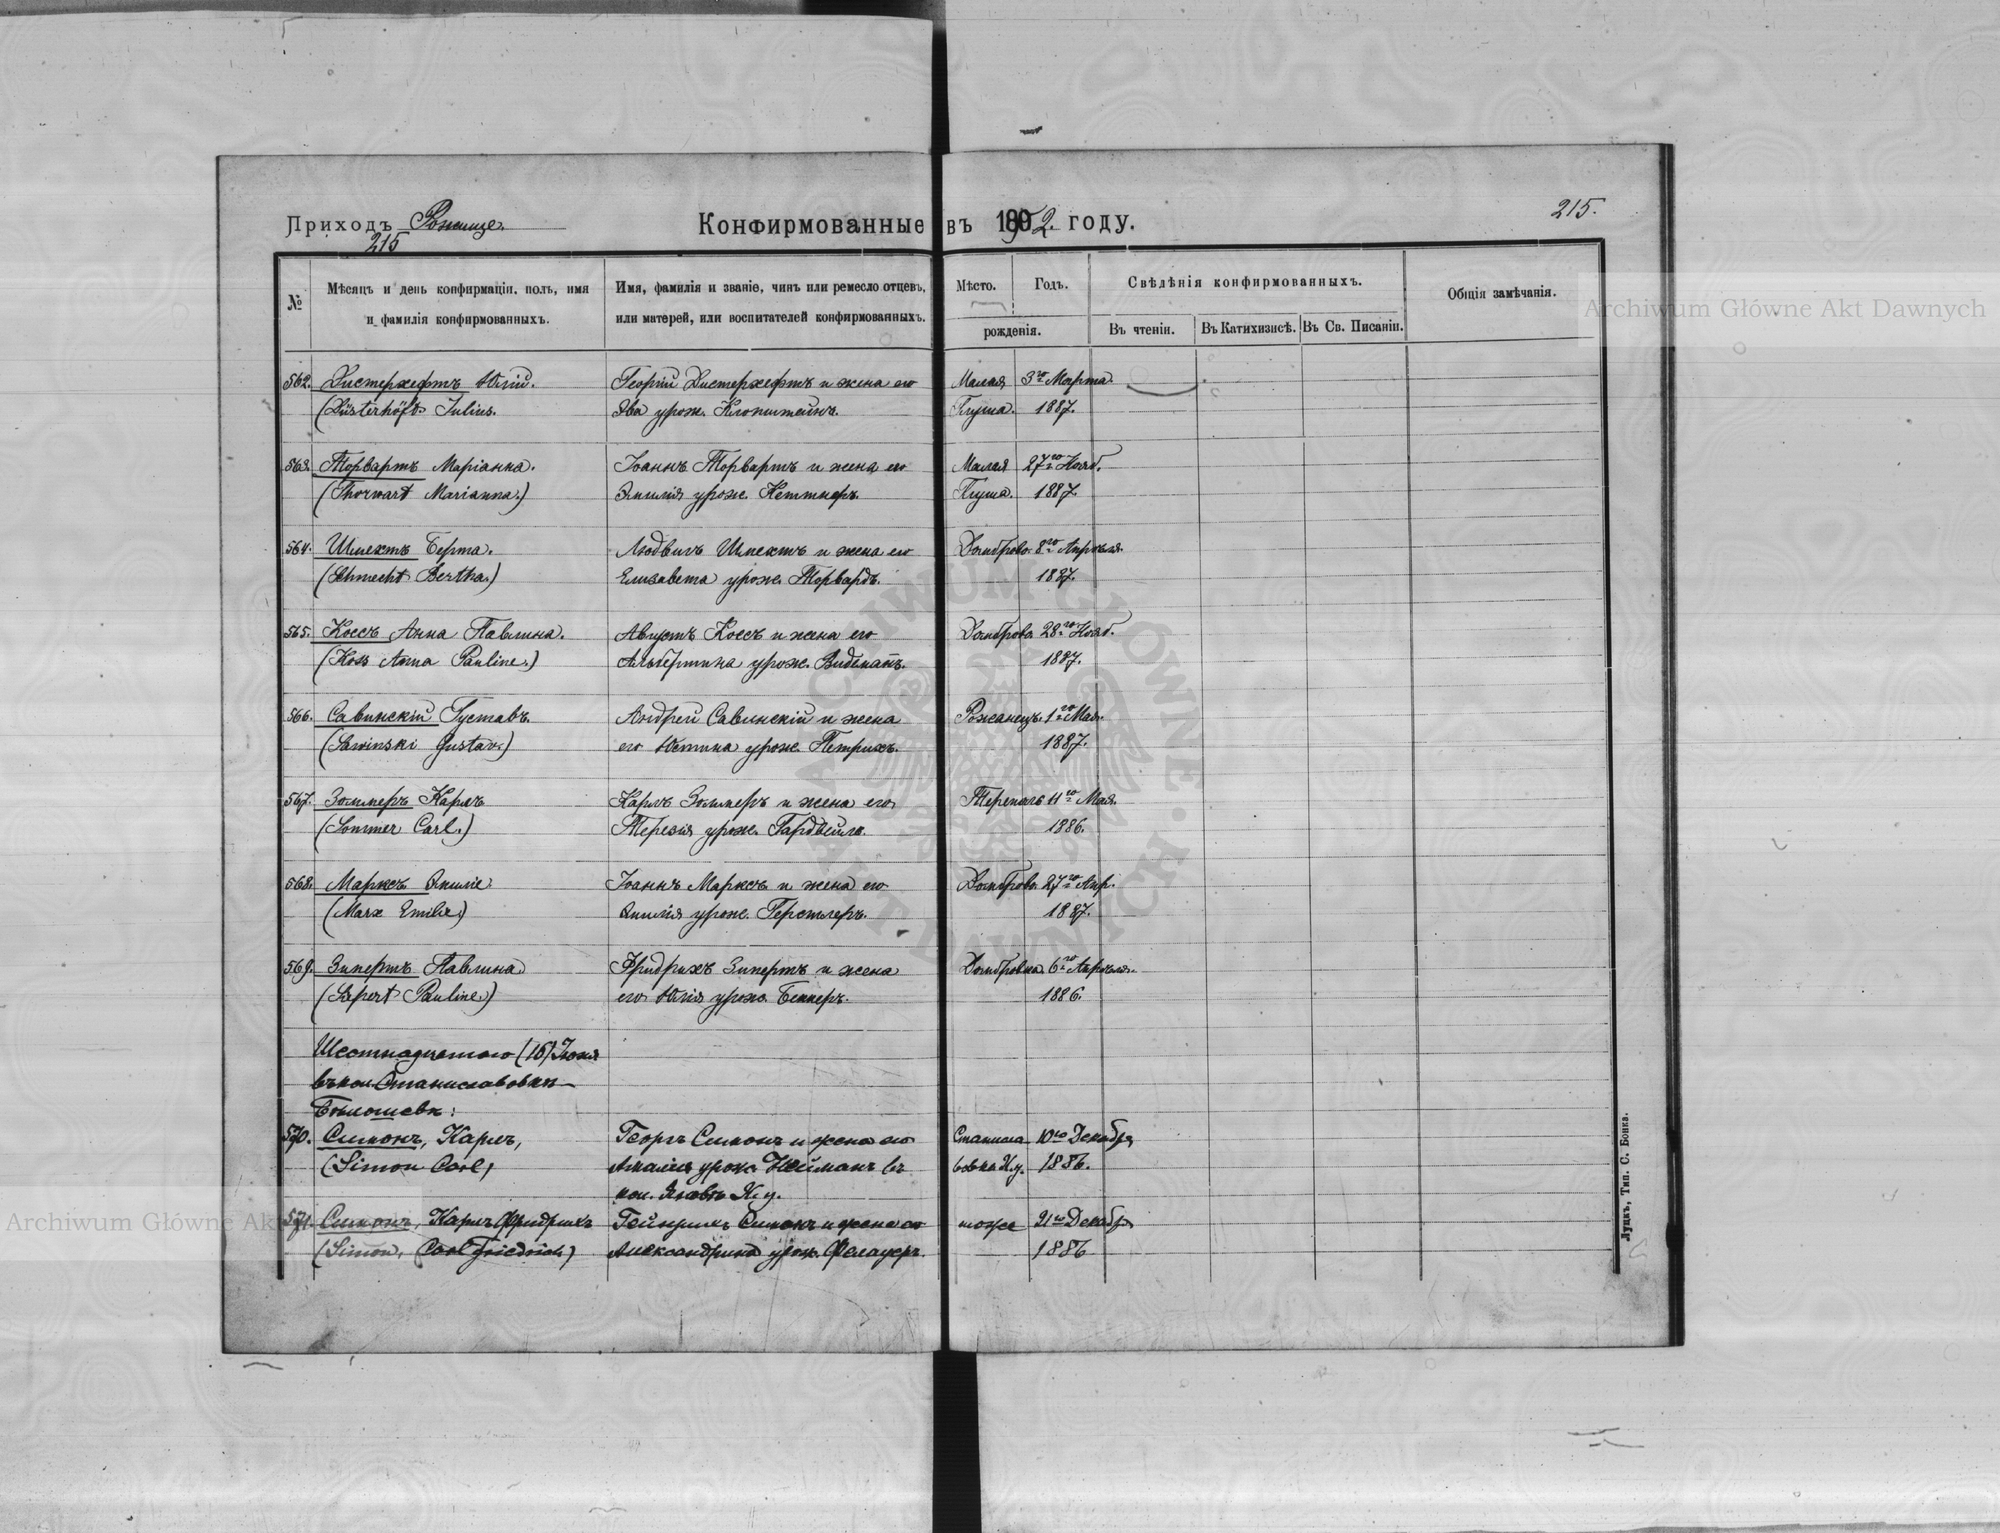 215.
Приходъ Рожище.
215
Конфирмованные въ 1902. году.
№
Мѣсяцъ и день конфирмаціи, полъ, имя
и фамилія конфирмованныхъ.
Имя, фамилія и званіе, чинъ или ремесло отцевъ,
или матерей, или воспитателей конфирмованныхъ.
Мѣсто.
Годъ.
рожденія.
Свѣдѣнія конфирмованныхъ.
Въ чтеніи.
Въ Катихизисѣ.
Въ Св. Писаніи.
Общія замѣчанія.
Archiwum Główne Akt Dawnych
562. Дистерхефтъ Юлій. Георгій Дистерхефтъ и жена его Малая 3го Марта.
(Düsterhöft Julius. Эва урож. Клопштейнъ. Глуша. 1887.
563. Торвартъ Маріанна. Іоаннъ Торвартъ и жена его Малая 27го Нояб.
(Thorwart Marianna.) Эмилія урож. Кеттнеръ. Глуша. 1887.
564. Шмехтъ Берта. Людвигъ Шмехтъ и жена его Домброва 8го Апрѣля.
(Schmecht Bertha.) Елизавета урож. Торвардъ. 1887.
565. Коссъ Анна Павлина. Августъ Коссъ и жена его Домброва 28го Нояб.
(Koss Anna Pauline.) Альбертина урож. Видеманъ. 1887.
566. Савинскій Густавъ. Андрей Савинскій и жена Рожанецъ. 1го Мая.
(Sawinski Gustav.) его Юстина урож. Петрихъ. 1887.
567. Зоммеръ Карлъ Карлъ Зоммеръ и жена его 11го Мая.
(Sommer Carl.) Терезія урож. 1886.
568. Марксъ Эмиліе. Іоаннъ Марксъ и жена его Домброва 27го Апр.
(Marx Emilie.) Эмилія урож. Герстлеръ. 1887.
569. Зипертъ Павлина Фридрихъ Зипертъ и жена Домбровка 6го Апрѣля.
(Sipert Pauline.) его Юлія урож. Беккеръ. 1886.
Шестнадцатаго (16) Іюня
въ кол. Станиславовкѣ
570. Симонъ, Карлъ, Георгъ Симонъ и жена его Станисла 10го Декабря
(Simon Carl, Амалія урож. Нейманъ въ вовка К. у. 1886.
кол. К. у.
571. Симонъ, Карлъ Фридрихъ Гейнрихъ Симонъ и жена его тоже 21го Декабр
(Simon, Carl Friedrich) Александрина урож. 1886
Луцкъ, Тип. С. Бонка.
Archiwum Główne Akt
ARCHIWUM GŁÓWNE AKT DAWNYCH